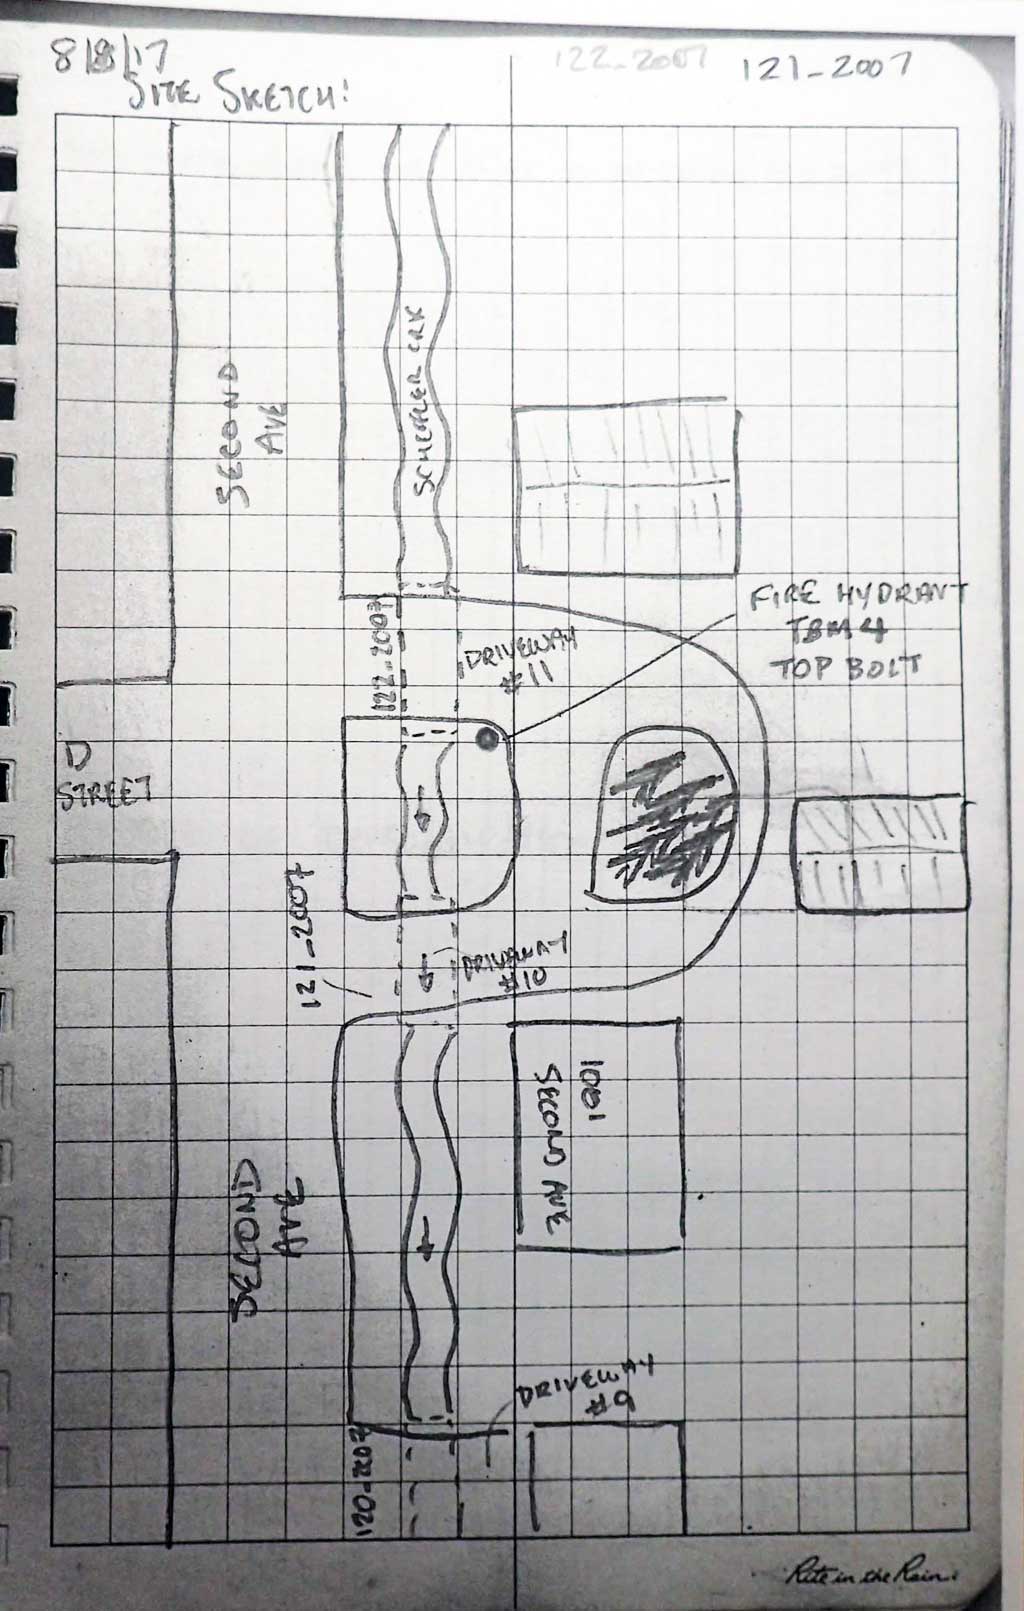 8/8/17
122-2007
121-2007
SITE SKETCH:
SCHEFFLER CRK
SECOND
AVE
FIRE HYDRANT
TBM 4
TOP BOLT
122-2007
DRIVEWAY
#11
D
STREET
121-2007
DRIVEWAY
#10
1001
SECOND AVE
SECOND
AVE
DRIVEWAY
#9
120-2007
Rite in the Rain.